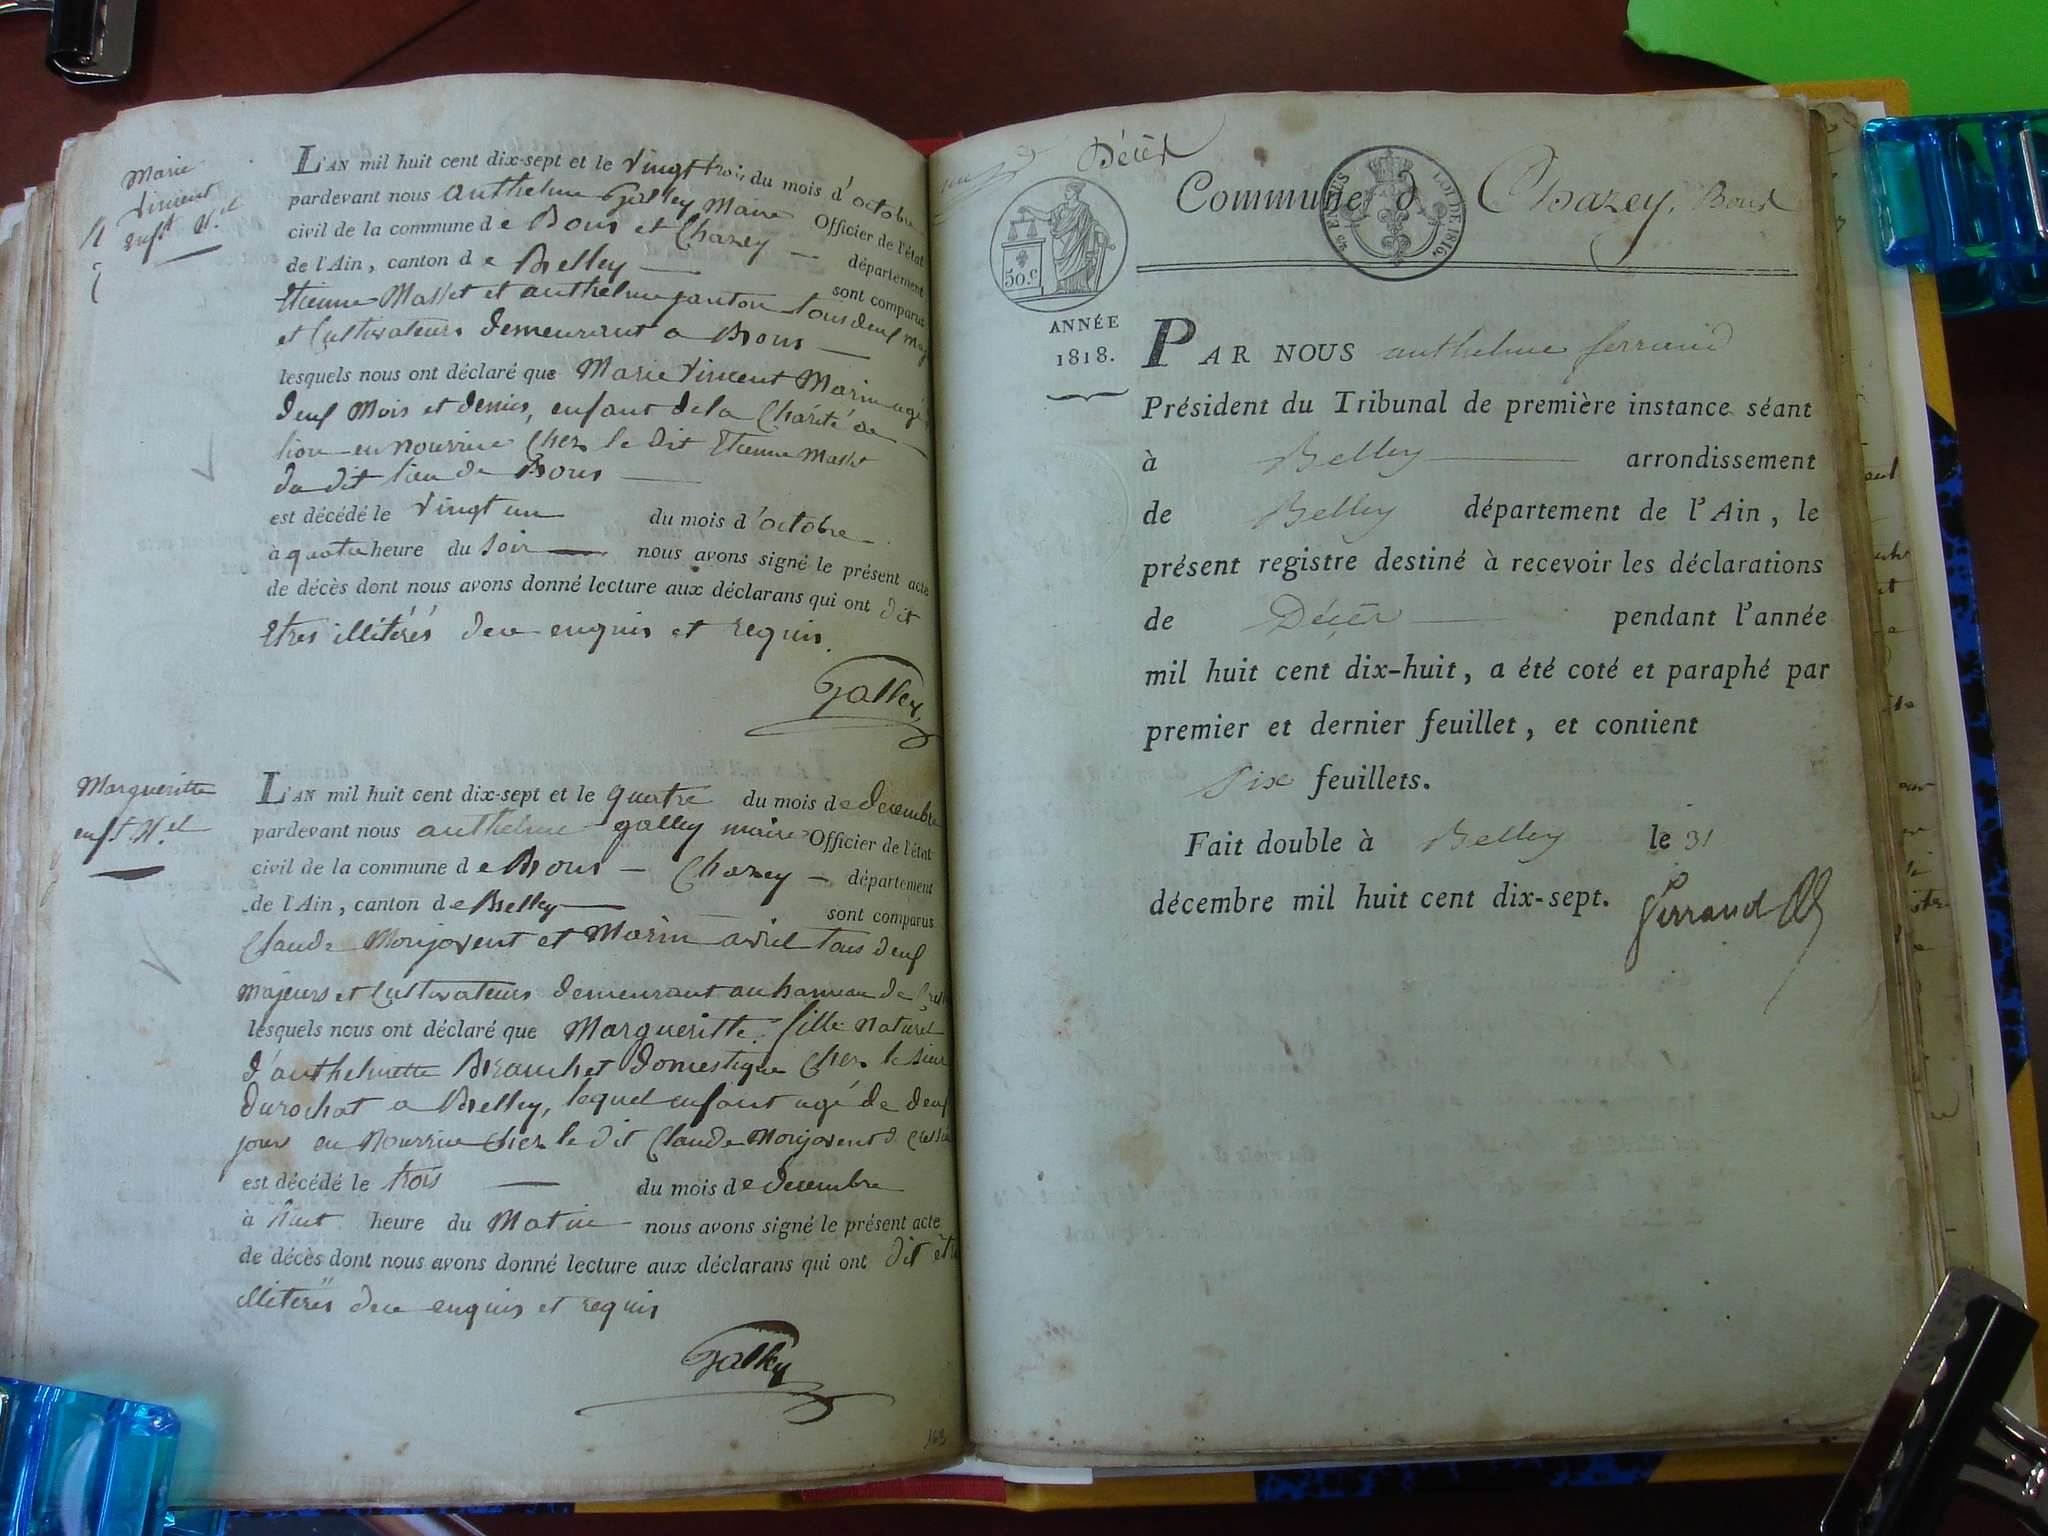 Marie
Vincent
enft Nel
L'AN mil huit cent dix-sept et le vingt trois du mois d'octobre
pardevant nous anthelme Galley Maire Officier de l'état
civil de la commune de Bons et Chazey département
de l'Ain, canton de Belley sont comparus
Etienne Masset et anthelme janton tous deuf maj
et Cultivateurs demeurant a Bons
lesquels nous ont déclaré que Marie Vincent Marin agé
deuf Mois et demis, enfant de la Charité de
lion en nourrice Chez le dit Etienne Masset
du dit lieu de Bons
est décédé le vingt un du mois d'octobre
à quatre heure du soir nous avons signé le présent acte
de décès dont nous avons donné lecture aux déclarans qui ont dit
Etres illitérés de ce enquis et requis.
Galley
Margueritte
enft Nel
L'AN mil huit cent dix-sept et le quatre du mois de decembre
pardevant nous anthelme galley maire Officier de l'état
civil de la commune de Bons - Chazey département
de l'Ain, canton de Belley sont comparus
Claude Monjovent et Marin avril tous deuf
majeurs et Cultivateurs demeurant au hameau de
lesquels nous ont déclaré que Margueritte fille naturel
d'anthelmette Branchet domestique Chez le sieur
durochat a Belley, lequel enfant agé de deuf
jours en Nourrice Chez le dit Claude Monjovent
est décédé le trois du mois de decembre
à huit heure du Matin nous avons signé le présent acte
de décès dont nous avons donné lecture aux déclarans qui ont dit être
illiterés de ce enquis et requis
Galley
163
Décès
Commune d Chazey, Bons
5 CENTIMES
LOI DE 1816
50.c
ANNÉE
1818.
PAR NOUS anthelme ferrand
Président du Tribunal de première instance séant
à Belley arrondissement
de Belley département de l'Ain, le
présent registre destiné à recevoir les déclarations
de Décès pendant l'année
mil huit cent dix-huit, a été coté et paraphé par
premier et dernier feuillet, et contient
six feuillets.
Fait double à Belley le 31
décembre mil huit cent dix-sept.
Ferrand